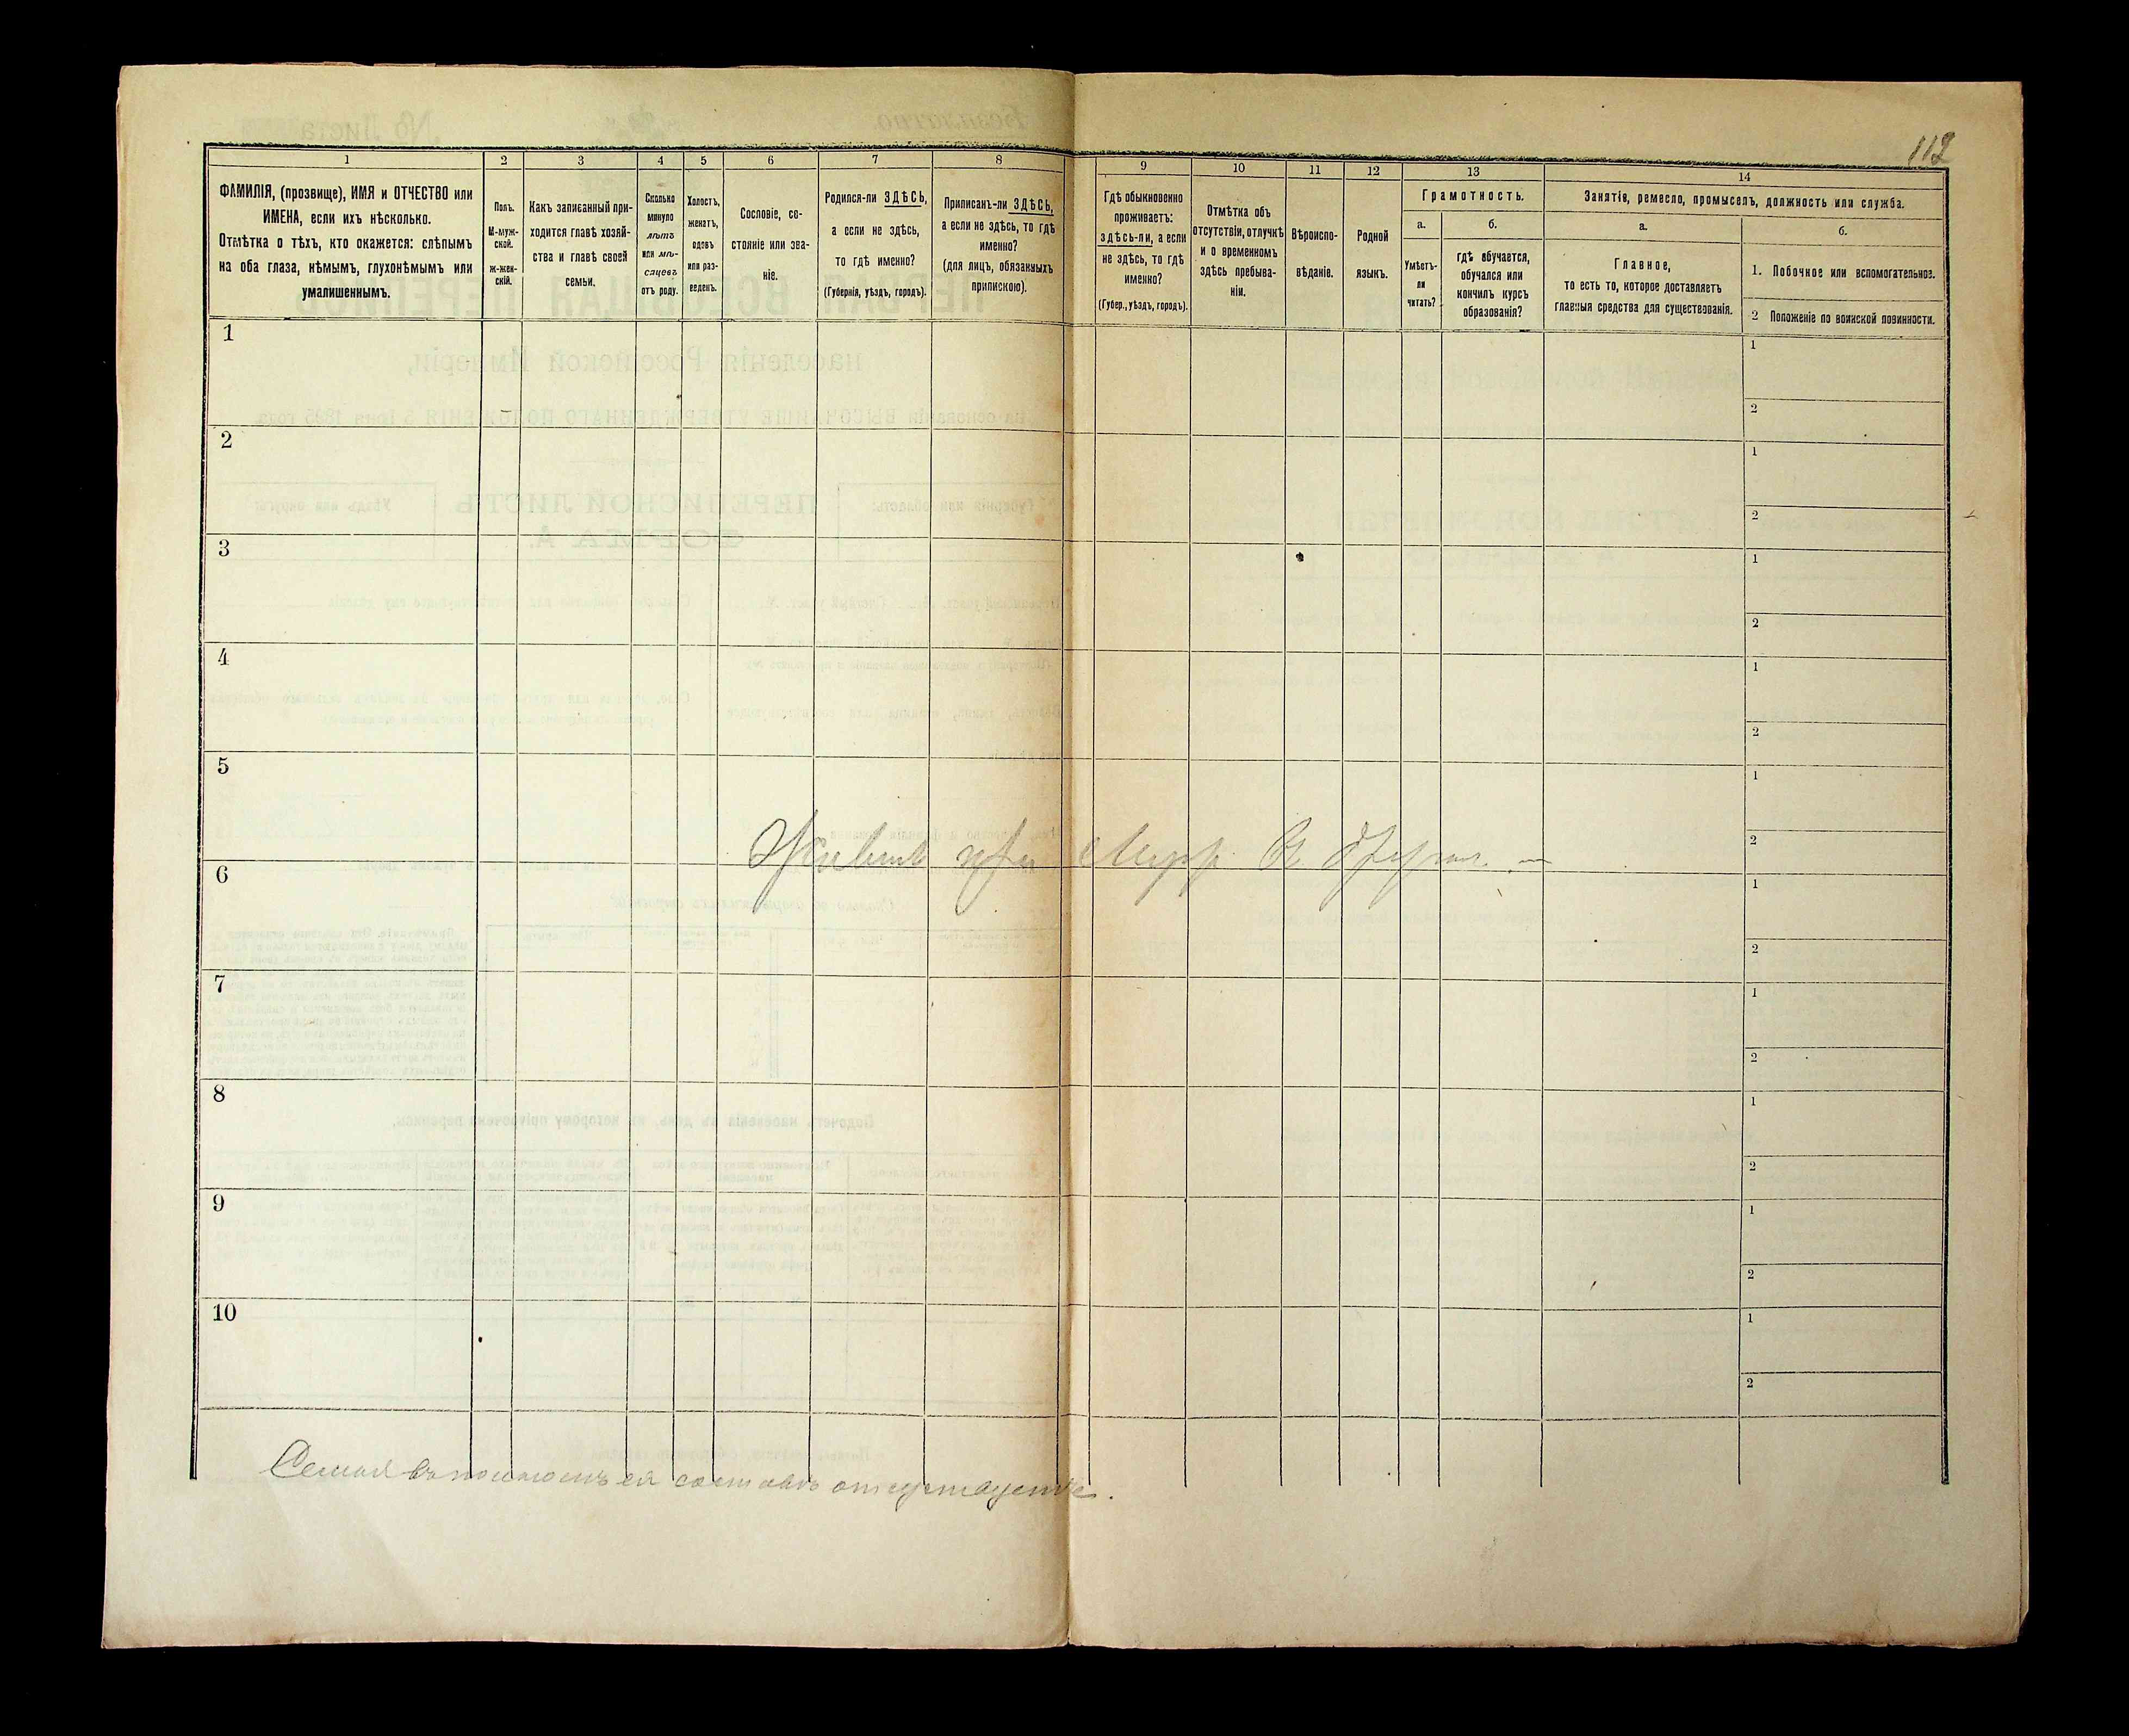 112
1 2 3 4 5 6 7 8 9 10 11 12 13 14
ФАМИЛІЯ, (прозвище), ИМЯ и ОТЧЕСТВО или
ИМЕНА, если ихъ нѣсколько.
Отмѣтка о тѣхъ, кто окажется: слѣпымъ
на оба глаза, нѣмымъ, глухонѣмымъ или
умалишеннымъ.
Полъ.
М-муж-
ской.
ж-жен-
скій.
Какъ записанный при-
ходится главѣ хозяй-
ства и главѣ своей
семьи.
Сколько
минуло
лѣтъ
или мѣ-
сяцевъ
отъ роду.
Холостъ,
женатъ,
вдовъ
или раз-
веденъ.
Сословіе, со-
стояніе или зва-
ніе.
Родился-ли ЗДѢСЬ,
а если не здѣсь,
то гдѣ именно?
(Губернія, уѣздъ, городъ).
Приписанъ-ли ЗДѢСЬ,
а если не здѣсь, то гдѣ
именно?
(для лицъ, обязанныхъ
припискою).
Гдѣ обыкновенно
проживаетъ:
здѣсь-ли, а если
не здѣсь, то гдѣ
именно?
(Губер., уѣздъ, городъ).
Отмѣтка объ
отсутствіи, отлучкѣ
и о временномъ
здѣсь пребыва-
ніи.
Вѣроиспо-
вѣданіе.
Родной
языкъ.
Грамотность.
а.
Умѣетъ-
ли
читать?
б.
гдѣ обучается,
обучался или
кончилъ курсъ
образованія?
Занятія, ремесло, промыселъ, должность или служба.
а.
Главное,
то есть то, которое доставляетъ
главныя средства для существованія.
б.
1. Побочное или вспомогательное.
2 Положеніе по воинской повинности.
1
1
2
2
1
2
3
1
2
4
1
2
5
1
2
6
1
2
7
1
2
8
1
2
9
1
2
10
1
2
Семья въ полномъ ея составѣ отсутствуетъ.